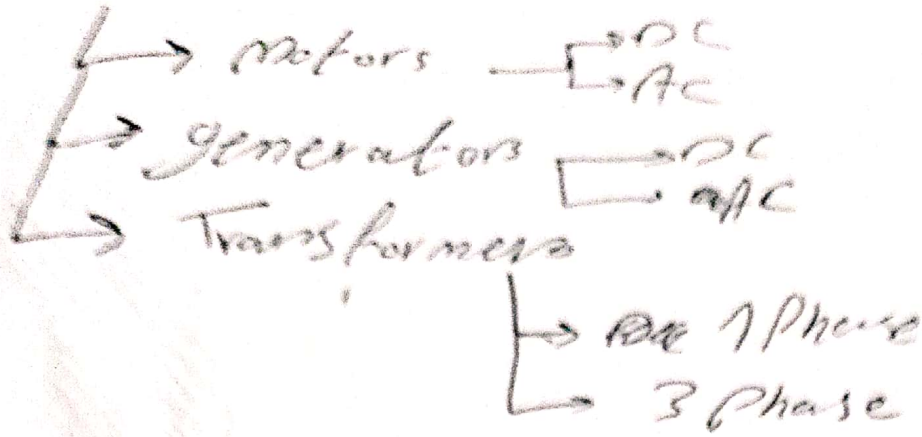 Motors
DC
AC
generators
DC
AC
Transformers
1 Phase
3 Phase